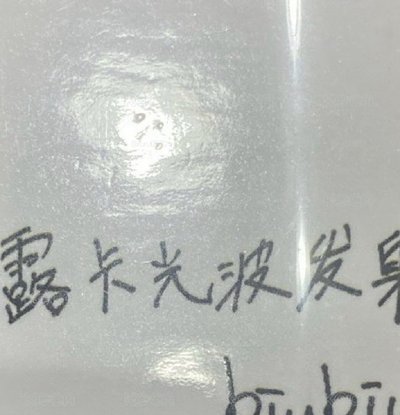 露卡光波发射
biubiu